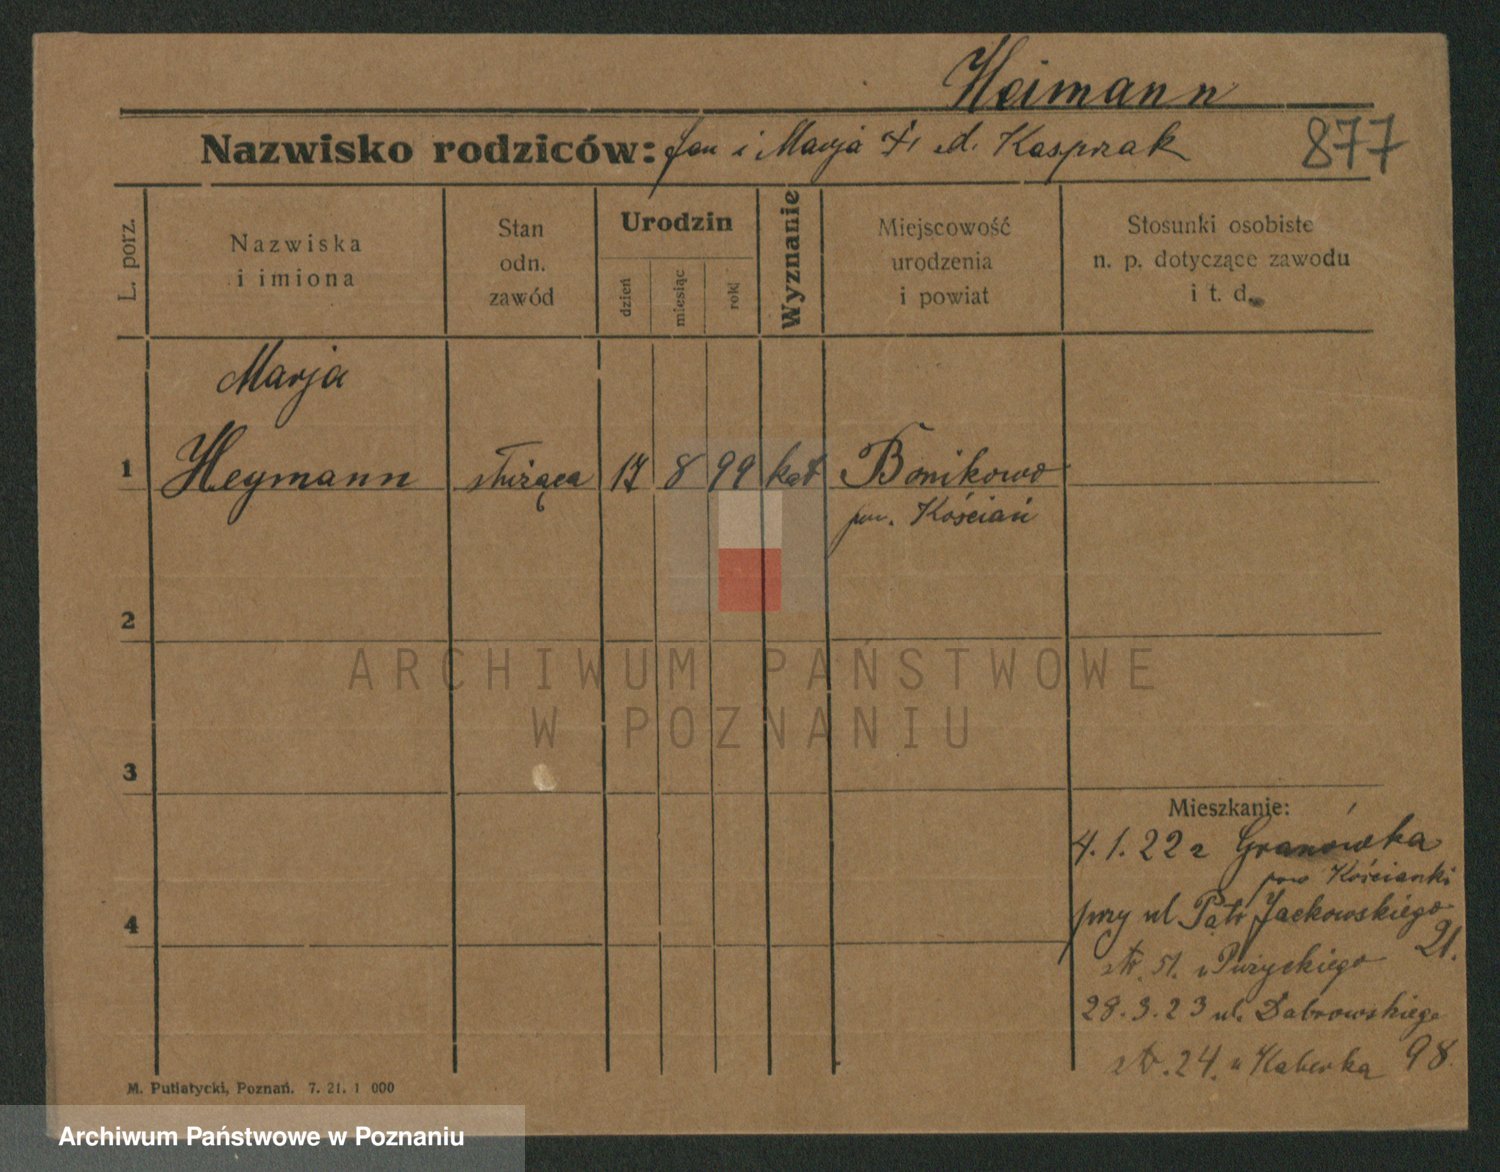 Heimann
Nazwisko rodziców: Jan i Marja z d. Kasprzak
877
L. porz.
Nazwiska
i imiona
Stan
odn.
zawód
Urodzin
dzień
miesiąc
rok
Wyznanie
Miejscowość
urodzenia
i powiat
Stosunki osobiste
n. p. dotyczące zawodu
i t. d.
Marja
1 Heymann służąca 17 8 99 kat Bonikowo
pow. Kościań
2
ARCHIWUM PAŃSTWOWE
W POZNANIU
3
Mieszkanie:
4.1.22 z Granówka
pow Kościański
przy ul Patr Jackowskiego
4
21.
str. 51. u
28.3.23 ul. Dabrowskiego
str. 24. u Haberka 98
M. Putiatycki, Poznań. 7. 21. 1 000
Archiwum Państwowe w Poznaniu